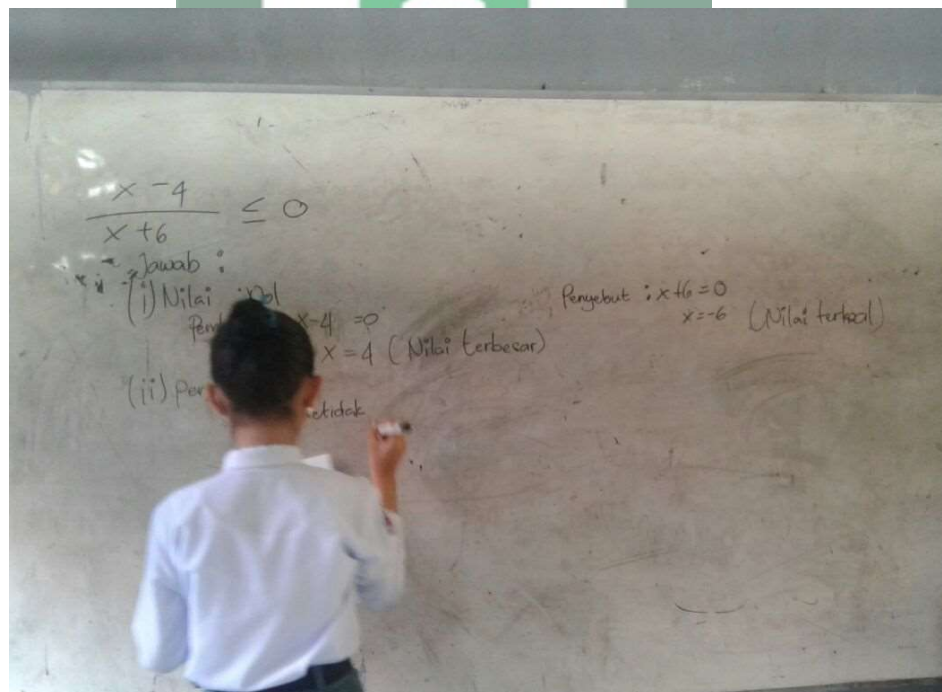 x - 4
x + 6
≤ 0
Jawab :
(i) Nilai
x-4 = 0
x = 4 (Nilai terbesar)
Penyebut : x+6 = 0
x = -6 (Nilai terkecil)
(ii) Per
etidak